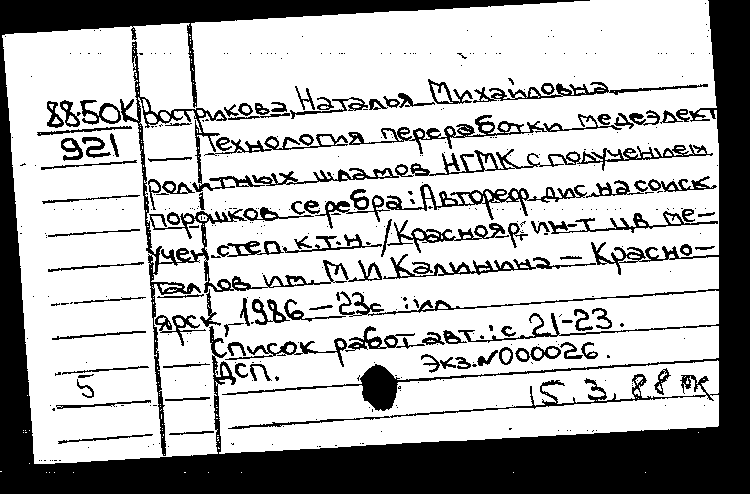 88-50К Вострикова, Наталья Михайловна.
921 Технология переработки медеэлект
ролитных шламов НГМК с получением
порошков серебра: Автореф. дис. на соиск.
учен. степ. к.т.н. /Краснояр. ин-т цв. ме-
таллов им. М.И. Калинина. — Красно-
ярск, 1986. — 23с. : ил.
Список работ авт.: с. 21-23.
ДСП. Экз. N000026.
5
15.3.88 ОК